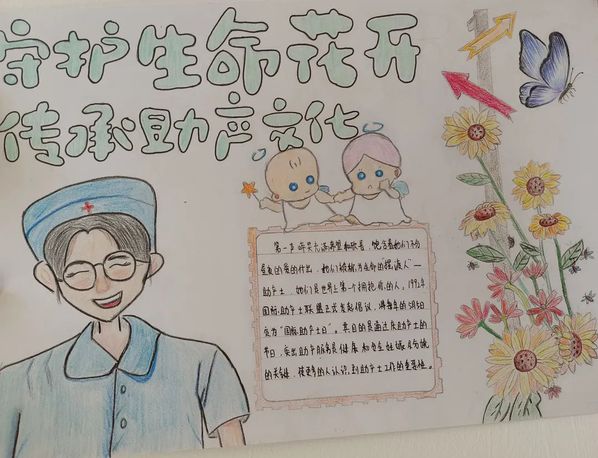 守护生命花开
传承助产文化
第一声啼哭充满希望和欢喜，她守着她们为
宝贵的爱的付出，她们被称为生命的摆渡人"—
助产士，她们是世界上第一个拥抱你的人。1991年
国际助产士联盟正式发起倡议，将每年的5月5日
定为"国际助产士日"。其目的是通过庆助产士的
节日，突出助产服务是健康和安全妊娠及分娩
的关键，使更多的人认识到助产士工作的重要性。